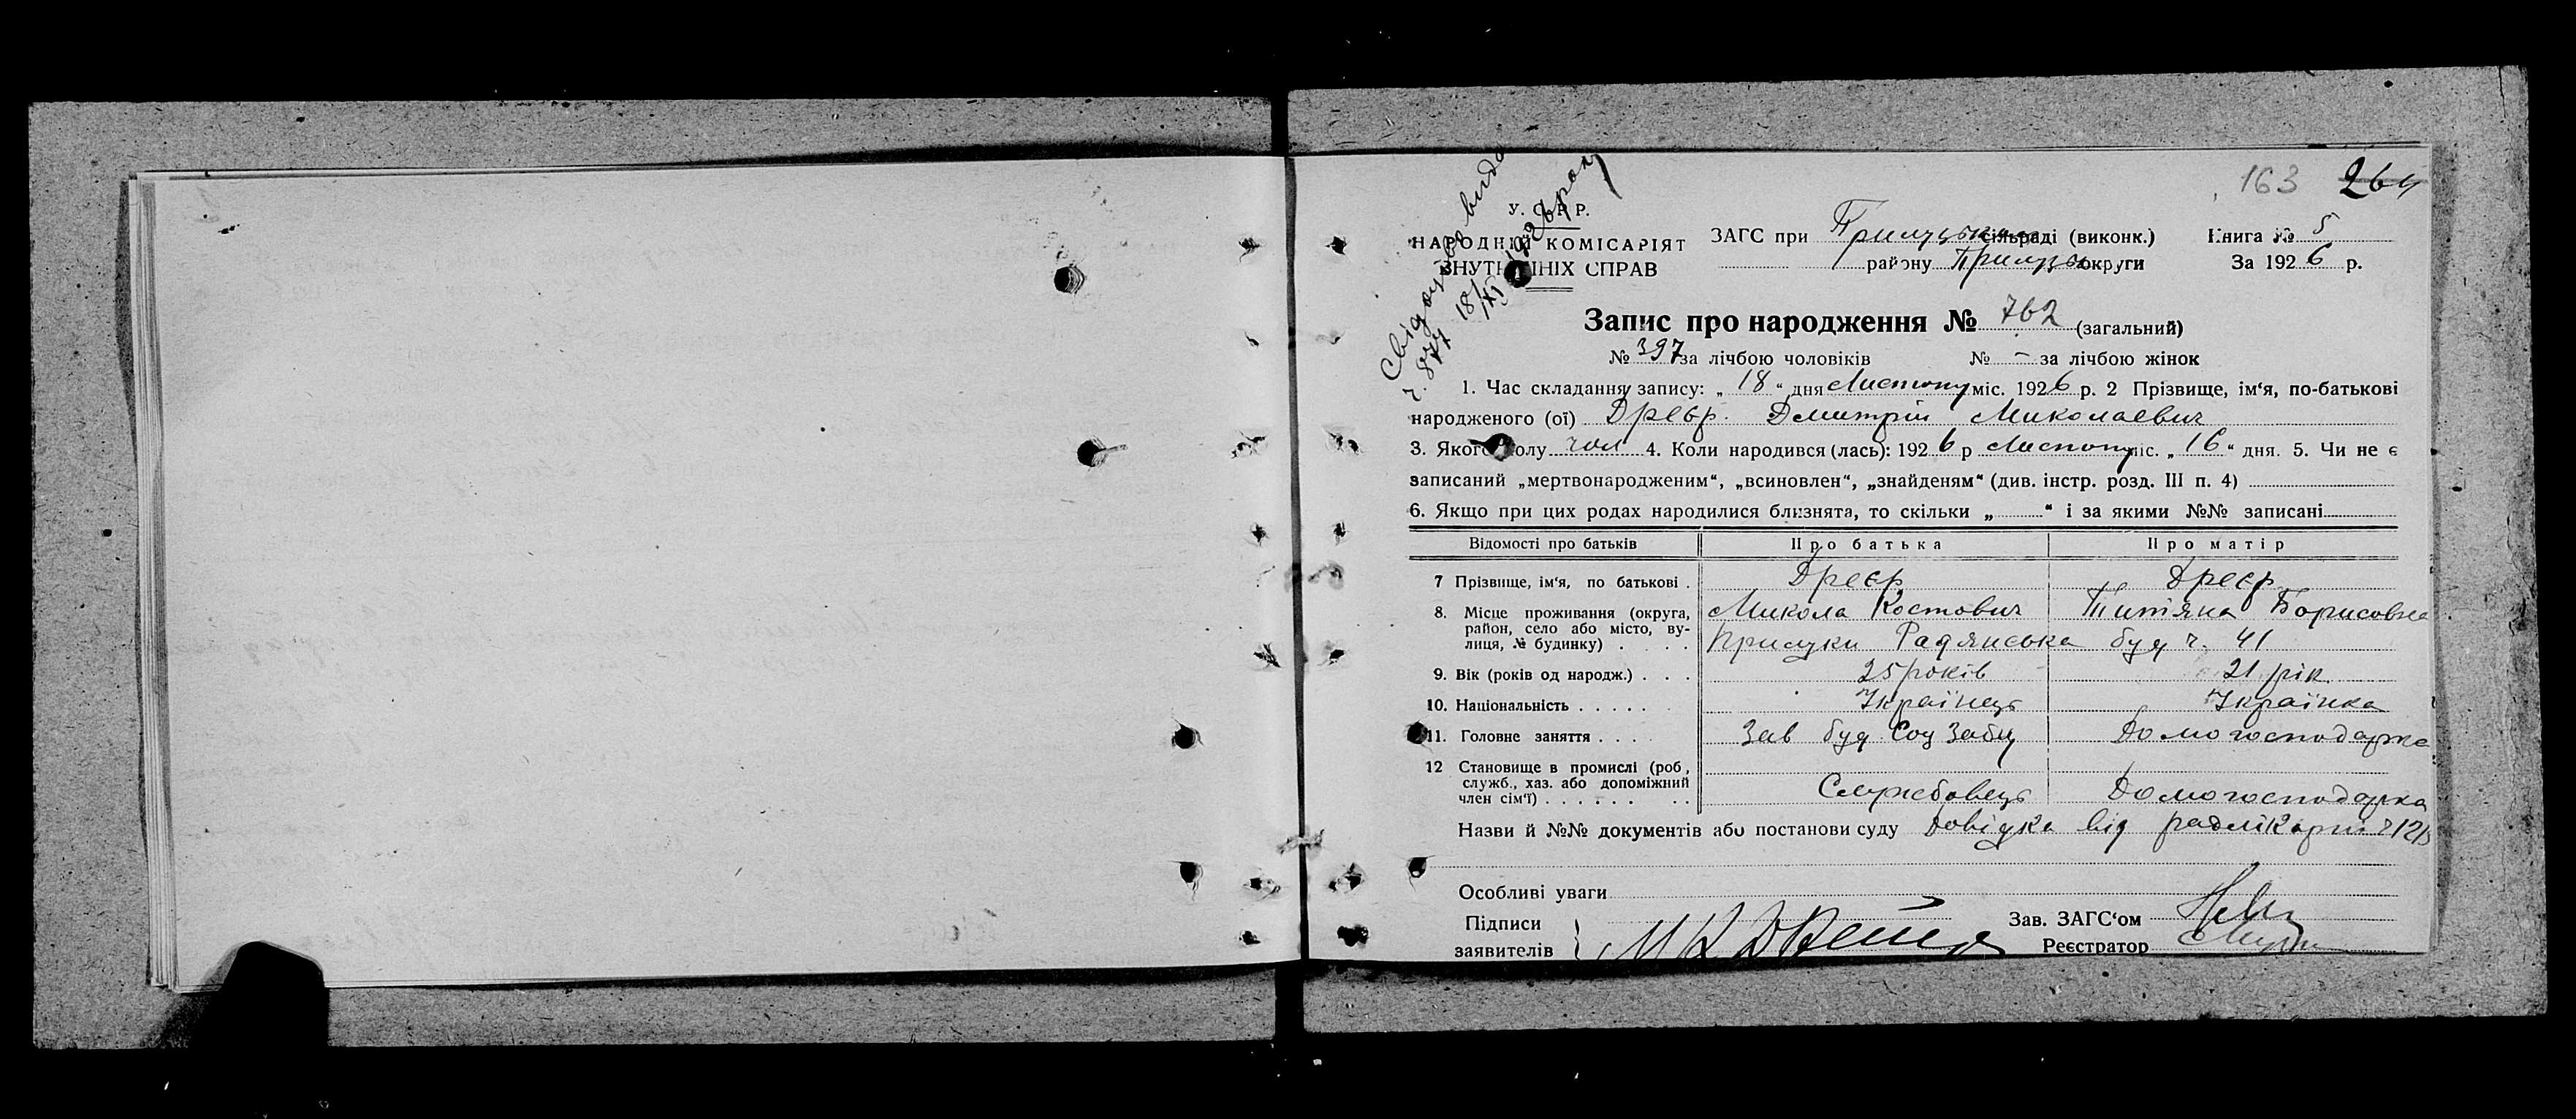 163 264
Свідоцтво вида
ч. 877 18/XI 1926 року
У. С. Р. Р.
НАРОДНІЙ КОМІСАРІЯТ
ВНУТРІШНІХ СПРАВ
ЗАГС при Прилуцьком сільраді (виконк.) Книга № 5
району Прилуцьк округи За 1926 р.
Запис про народження № 762 (загальний)
№ 397 за лічбою чоловіків № - за лічбою жінок
1. Час складання запису: „ 18 “ дня Листопу міс. 1926 р. 2 Прізвище, ім‘я, по-батькові
народженого (ої) Дреєр. Дмитрій Миколаевич
3. Якого полу чол 4. Коли народився (лась): 1926 р Листопу міс. „ 16 “ дня. 5. Чи не є
записаний „мертвонародженим“, „всиновлен“, „знайденям“ (див. інстр. розд. III п. 4)
6. Якщо при цих родах народилися близнята, то скільки „ “ і за якими №№ записані
Відомості про батьків Про батька Про матір
7 Прізвище, ім‘я, по батькові . Дреєр Дреєр
8. Місце проживання (округа, Микола Костович Титяна Борисовна
район, село або місто, ву-
лиця, № будинку) . . . . Прилуки Радянська буд ч. 41
9. Вік (років од народж.) . . . 25 років 21 рік
10. Національність . . . . . Українець Українка
11. Головне заняття . . . . Зав буд Соц Забц Домогосподарка
12 Становище в промислі (роб,
служб., хаз. або допоміжний
член сім‘ї) . . . . . . . . Службовець Домогосподарка
Назви й №№ документів або постанови суду Довідка від радлікарні ч
Особливі уваги
Підписи Зав. ЗАГС‘ом
заявителів М К Дреєр Реєстратор